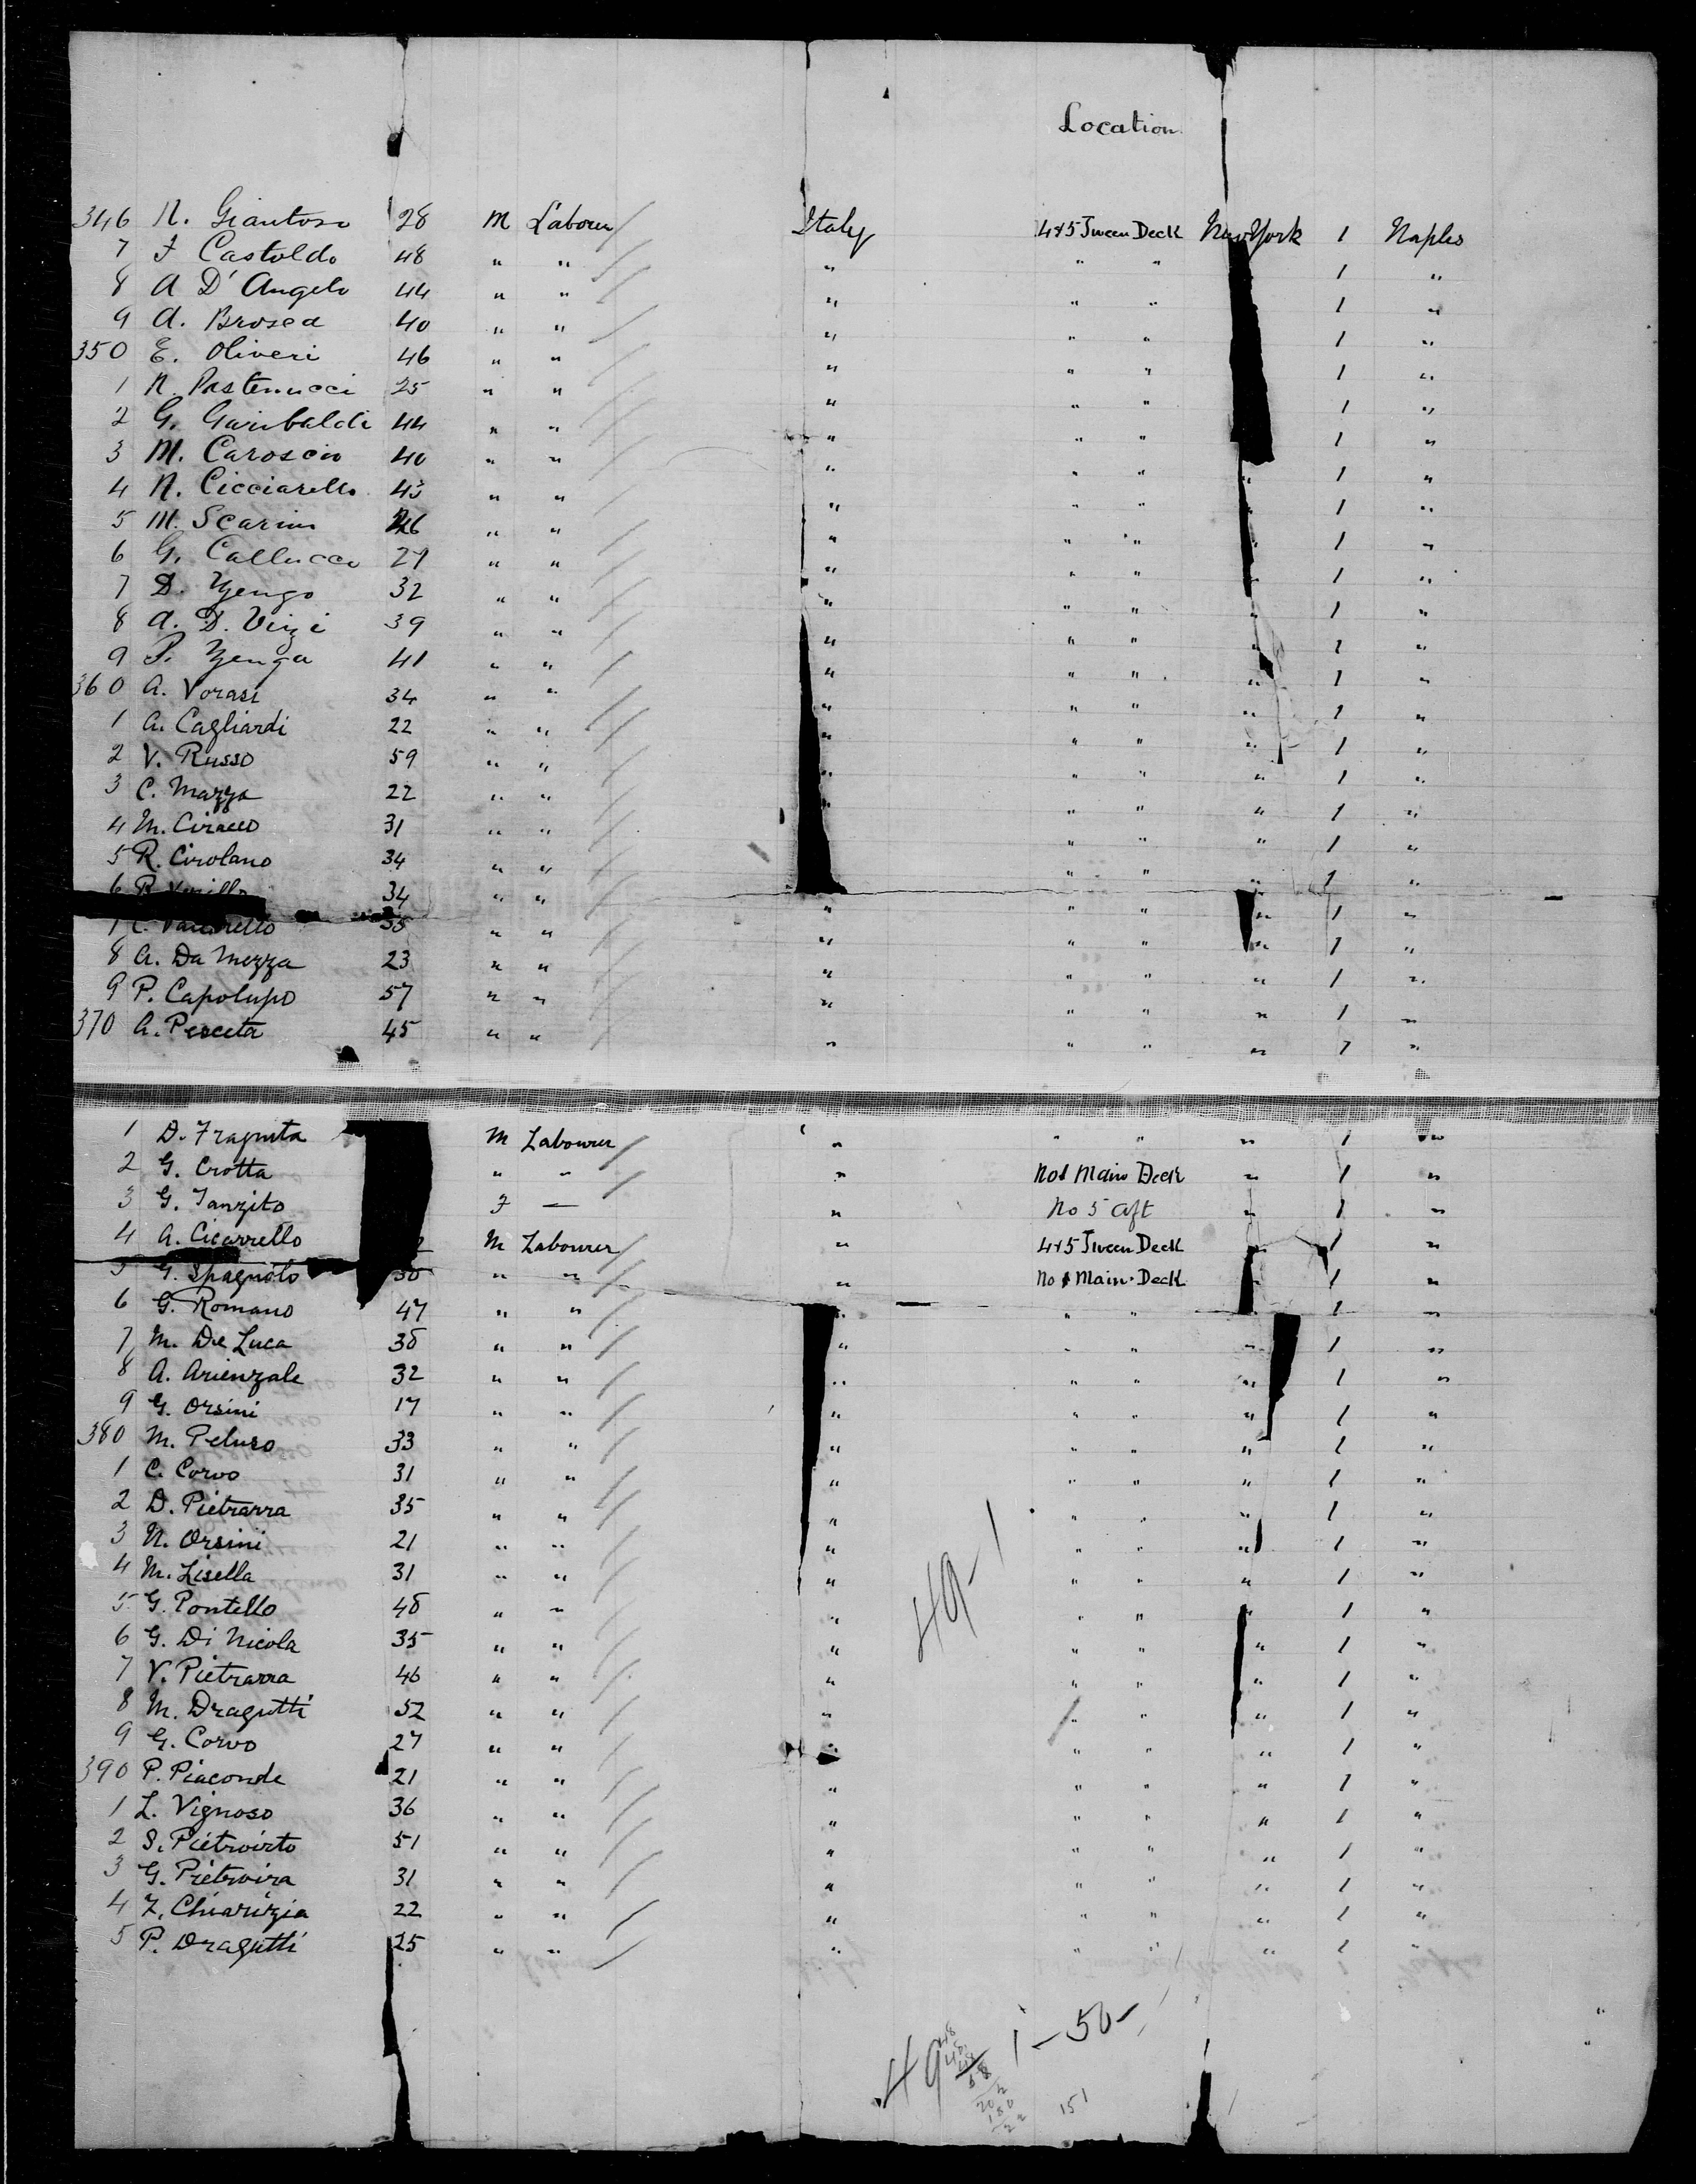 Location
346 N. Giantoso 28 M Labourer Italy 4&5 Tween Deck New York 1 Naples
7 F Castoldo 48 " " " " " 1 "
8 A D'Angelo 44 " " " " " 1 "
9 A. Brosca 40 " " " " " 1 "
350 E. Oliveri 46 " " " " " 1 "
1 N. Pastenucci 25 " " " " " 1 "
2 G. Garibaldi 44 " " " " " 1 "
3 M. Caroscio 40 " " " " " " 1 "
4 N. Cicciarello 43 " " " " " 1 "
5 M. Scarini 46 " " " " " 1 "
6 G. Callucci 27 " " " " " " 1 "
7 D. Yengo 32 " " " " " " 1 "
8 A. D. Virzi 39 " " " " " " 1 "
9 P. Yenga 41 " " " " " " 1 "
360 A. Vorasi 34 " " " " " " 1 "
1 A. Cagliardi 22 " " " " " " 1 "
2 V. Russo 59 " " " " " " 1 "
3 C. Mazza 22 " " " " " " 1 "
4 M. Ciracco 31 " " " " " 1 "
5 R. Cirolano 34 " " " " " 1 "
6 34 " " " " " " 1 "
7 C. 35 " " " " " " 1 "
8 A. Da Mezza 23 " " " " " " 1 "
9 P. Capolupo 57 " " " " " " 1 "
370 A. Pesceta 45 " " " " " " 1 "
1 D. Fragnita M Labourer " " " " 1 "
2 G. Crotta " " " No 1 Main Deck " 1 "
3 G. Tanzito F — " No 5 aft " 1 "
4 A. Cicarrello M Labourer " 4&5 Tween Deck " 1 "
5 G. Spagnolo 38 " " " No 1 Main Deck " 1 "
6 G. Romano 47 " " " " " 1 "
7 M. De Luca 38 " " " " " " 1 "
8 A. Arienzale 32 " " " " " " 1 "
9 G. Orsini 17 " " " " " " 1 "
380 M. Peluso 33 " " " " " " 1 "
1 C. Corvo 31 " " " " " " 1 "
2 D. Pietrarra 35 " " " " " " 1 "
3 N. Orsini 21 " " " " " " 1 "
4 M. Lisella 31 " " " " " " 1 "
5 G. Pontello 48 " " " " " 1 "
6 G. Di Nicola 35 " " " " " " 1 "
7 V. Pietrarra 46 " " " " " " 1 "
8 M. Dragutti 52 " " " " " " 1 "
9 G. Corvo 27 " " " " " " 1 "
390 P. Piaconde 21 " " " " " " 1 "
1 L. Vignoso 36 " " " " " " 1 "
2 S. Pietroirto 51 " " " " " " 1 "
3 G. Pietroira 31 " " " " " " 1 "
4 F. Chiarizia 22 " " " " " " 1 "
5 P. Dragutti 25 " " " " " " 1 "
49-1
49 1-50-
151